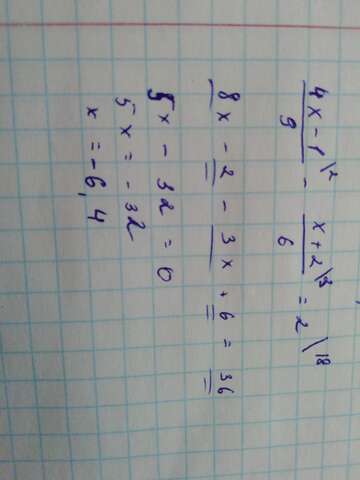 (4x - 1)/9 \2 - (x + 2)/6 \3 = 2 \18
8x - 2 - 3x + 6 = 36
5x - 32 = 0
5x = - 32
x = - 6,4